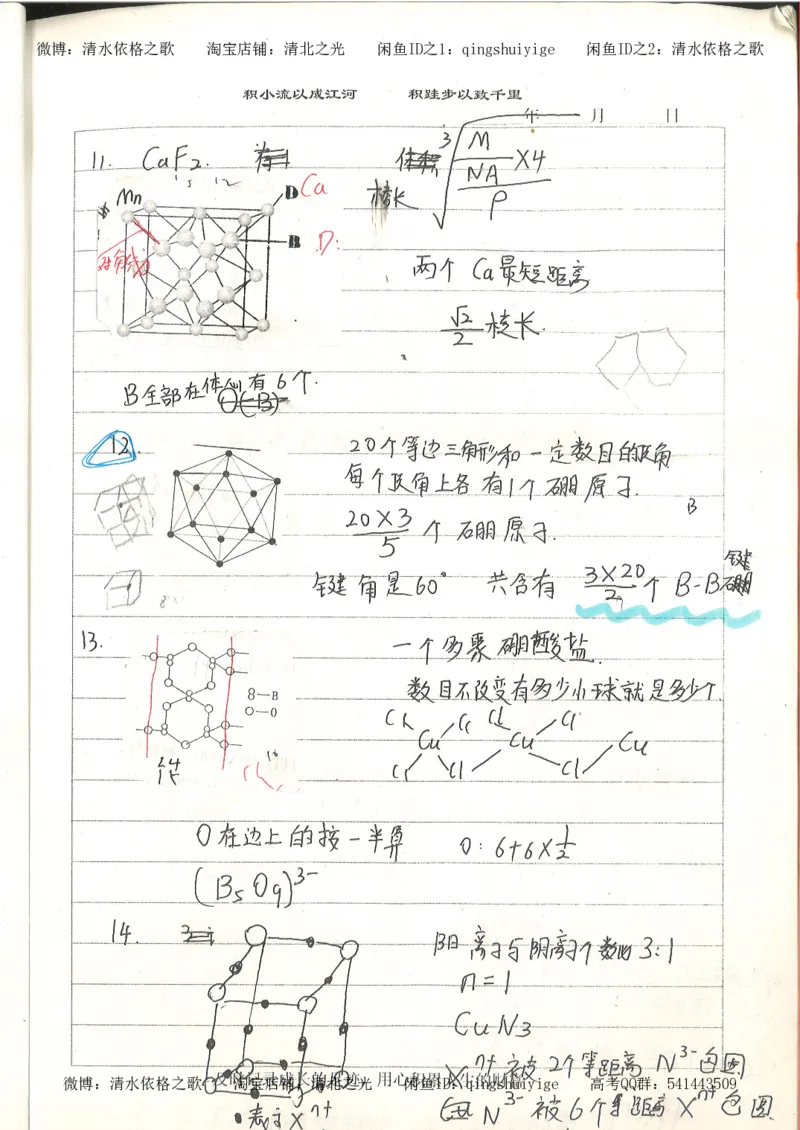 微博：清水依格之歌 淘宝店铺：清北之光 闲鱼ID之1：qingshuiyige 闲鱼ID之2：清水依格之歌
积小流以成江河 积跬步以致千里
年 月 日
11. CaF2.
棱长 ³√(M/NA×4/ρ)
Mn
D Ca
B D:
对角线
两个Ca最短距离
√2/2 棱长.
B全部在体心 有6个.
12.
20个等边三角形和一定数目的顶角
每个顶角上各有1个硼原子.
B
20×3/5 个硼原子.
键角是60° 共含有 3×20/2 个 B-B键
13.
一个多聚硼酸盐.
数目不改变有多少小球就是多少个.
B
O
Cl Cl Cl Cl
Cu Cu Cu
Cl Cl Cl
O在边上的按一半算 O: 6+6×1/2
(B5O9)3-
14.
阳离子与阴离子个数比3:1
n=1
CuN3
Xn+被2个等距离N3-包围
微博：清水依格之歌 淘宝店铺：清北之光 闲鱼ID：qingshuiyige 高考QQ群：541443509
•表示Xn+
N3-被6个等距离Xn+包围